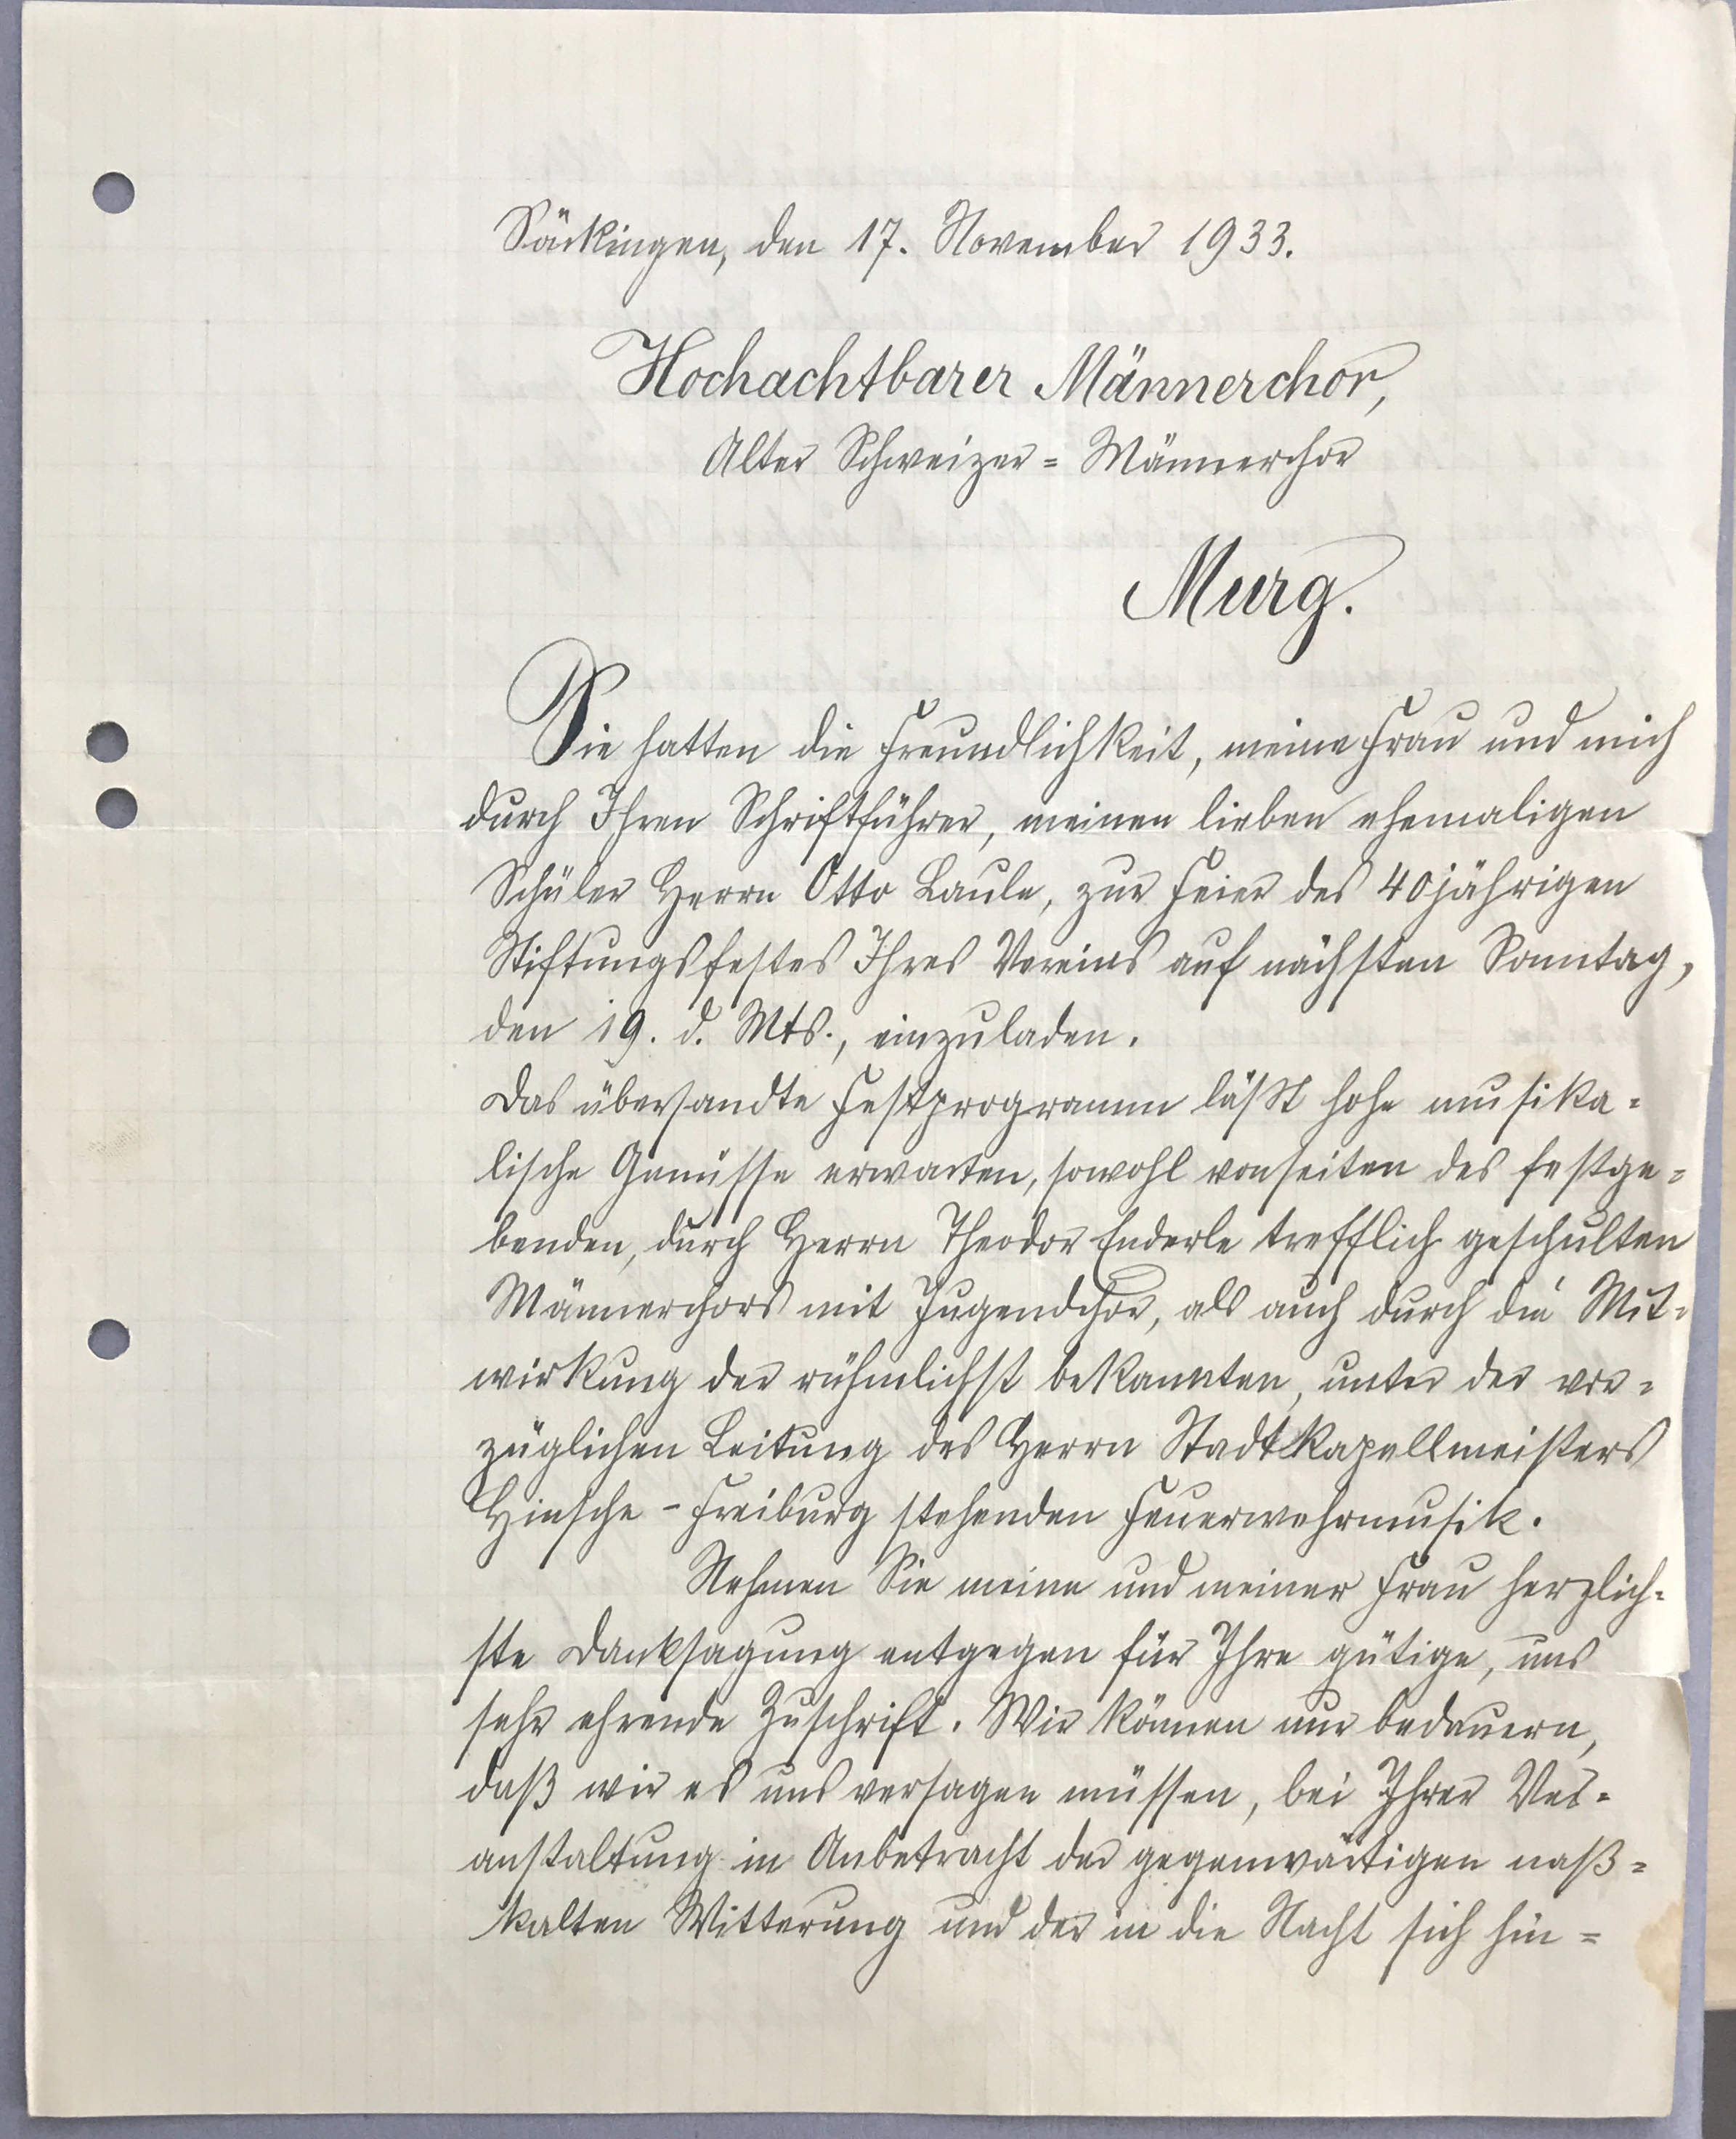 Säckingen, den 17. November 1933.
Hochachtbarer Männerchor,
Alter Schweizer = Männerchor
Murg.
Sie hatten die Freundlichkeit, meine Frau und mich
durch Ihren Schriftführer, meinen lieben ehemaligen
Schüler Herrn Otto Laule, zur Feier des 40jährigen
Stiftungsfestes Ihres Vereins auf nächsten Sonntag,
den 19. d. Mts., einzuladen.
Das übersandte Festprogramm läßt hohe musika=
lische Genüsse erwarten, sowohl vonseiten des festge=
benden, durch Herrn Theodor Enderle trefflich geschulten
Männerchors mit Jugendchor, als auch durch die Mit=
wirkung der rühmlichst bekannten, unter der vor=
züglichen Leitung des Herrn Stadtkapellmeisters
Hinsche - Freiburg stehenden Feuerwehrmusik.
Nehmen Sie meine und meiner Frau herzlich=
ste Danksagung entgegen für Ihre gütige, uns
sehr ehrende Zuschrift. Wir können nur bedauern,
daß wir es uns versagen müssen, bei Ihrer Ver=
anstaltung in Anbetracht der gegenwärtigen naß=
kalten Witterung und der in die Nacht sich hin=